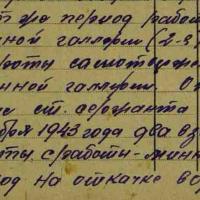 же период работ
ной галлереи (2-я
роты самоотверже
нной галлереи. О
ст. сержанта
бря 1943 года два вз
ты с работы - минн
од на откачке во